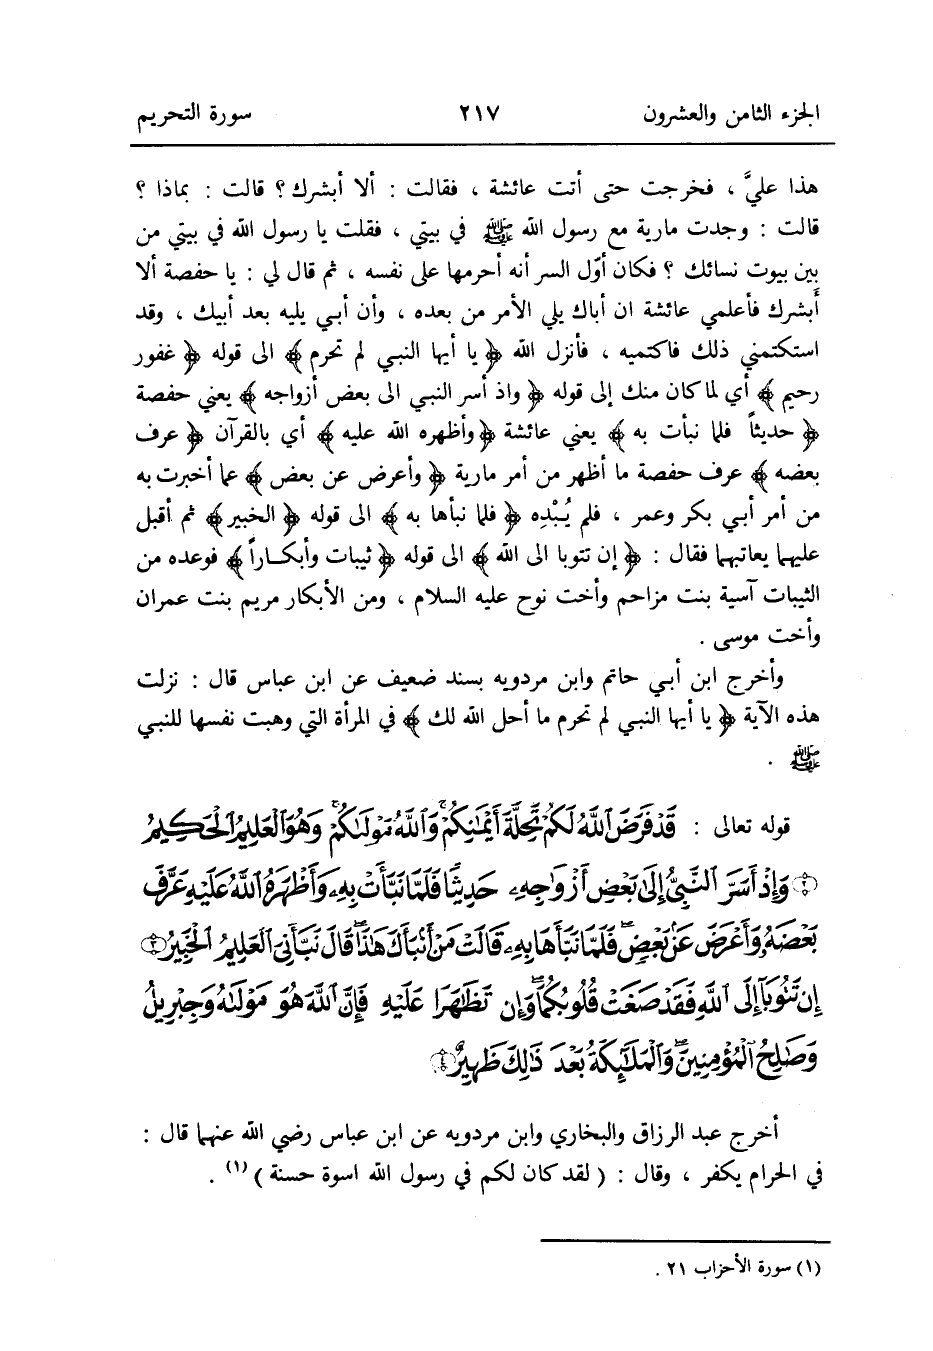 الجزء الثامن والعشرون ٢١٧ سورة التحريم
هذا عليَّ ، فخرجت حتى أتت عائشة ، فقالت : ألا أبشرك ؟ قالت : بماذا ؟
قالت : وجدت مارية مع رسول الله ﷺ في بيتي ، فقلت يا رسول الله في بيتي من
بين بيوت نسائك ؟ فكان أوّل السر أنه أحرمها على نفسه ، ثم قال لي : يا حفصة ألا
أبشرك فأعلمي عائشة ان أباك يلي الأمر من بعده ، وأن أبي يليه بعد أبيك ، وقد
استكتمني ذلك فاكتميه ، فأنزل الله ﴿ يا أيها النبي لم تحرم ﴾ الى قوله ﴿ غفور
رحيم ﴾ أي لما كان منك إلى قوله ﴿ واذ أسر النبي الى بعض أزواجه ﴾ يعني حفصة
﴿ حديثاً فلما نبأت به ﴾ يعني عائشة ﴿ وأظهره الله عليه ﴾ أي بالقرآن ﴿ عرف
بعضه ﴾ عرف حفصة ما أظهر من أمر مارية ﴿ وأعرض عن بعض ﴾ عما أخبرت به
من أمر أبي بكر وعمر ، فلم يُبْدِه ﴿ فلما نبأها به ﴾ الى قوله ﴿ الخبير ﴾ ثم أقبل
عليهما يعاتبهما فقال : ﴿ إن تتوبا الى الله ﴾ الى قوله ﴿ ثيبات وأبكـاراً ﴾ فوعده من
الثيبات آسية بنت مزاحم وأخت نوح عليه السلام ، ومن الأبكار مريم بنت عمران
وأخت موسى .
وأخرج ابن أبي حاتم وابن مردويه بسند ضعيف عن ابن عباس قال : نزلت
هذه الآية ﴿ يا أيها النبي لم تحرم ما أحل الله لك ﴾ في المرأة التي وهبت نفسها للنبي
ﷺ .
قوله تعالى : قَدْ فَرَضَ ٱللَّهُ لَكُمْ تَحِلَّةَ أَيْمَـٰنِكُمْ ۚ وَٱللَّهُ مَوْلَىٰكُمْ ۖ وَهُوَ ٱلْعَلِيمُ ٱلْحَكِيمُ
﴿٢﴾ وَإِذْ أَسَرَّ ٱلنَّبِىُّ إِلَىٰ بَعْضِ أَزْوَٰجِهِۦ حَدِيثًا فَلَمَّا نَبَّأَتْ بِهِۦ وَأَظْهَرَهُ ٱللَّهُ عَلَيْهِ عَرَّفَ
بَعْضَهُۥ وَأَعْرَضَ عَنۢ بَعْضٍ ۖ فَلَمَّا نَبَّأَهَا بِهِۦ قَالَتْ مَنْ أَنۢبَأَكَ هَـٰذَا ۖ قَالَ نَبَّأَنِىَ ٱلْعَلِيمُ ٱلْخَبِيرُ ﴿٣﴾
إِن تَتُوبَآ إِلَى ٱللَّهِ فَقَدْ صَغَتْ قُلُوبُكُمَا ۖ وَإِن تَظَـٰهَرَا عَلَيْهِ فَإِنَّ ٱللَّهَ هُوَ مَوْلَىٰهُ وَجِبْرِيلُ
وَصَـٰلِحُ ٱلْمُؤْمِنِينَ ۖ وَٱلْمَلَـٰٓئِكَةُ بَعْدَ ذَٰلِكَ ظَهِيرٌ ﴿٤﴾
أخرج عبد الرزاق والبخاري وابن مردويه عن ابن عباس رضي الله عنهما قال :
في الحرام يكفر ، وقال : ( لقد كان لكم في رسول الله اسوة حسنة ) (١) .
(١) سورة الأحزاب ٢١ .